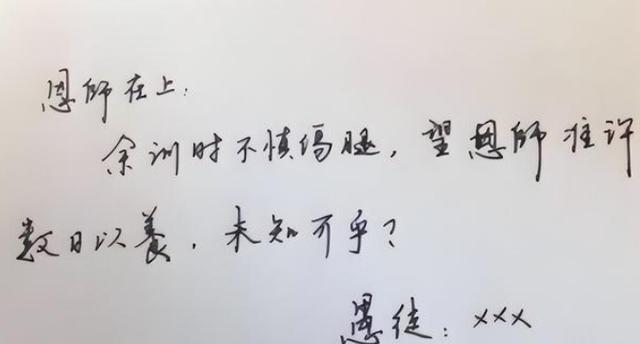 恩师在上：
余训时不慎伤腿，望恩师准许
数日以养，未知可乎？
愚徒：×××